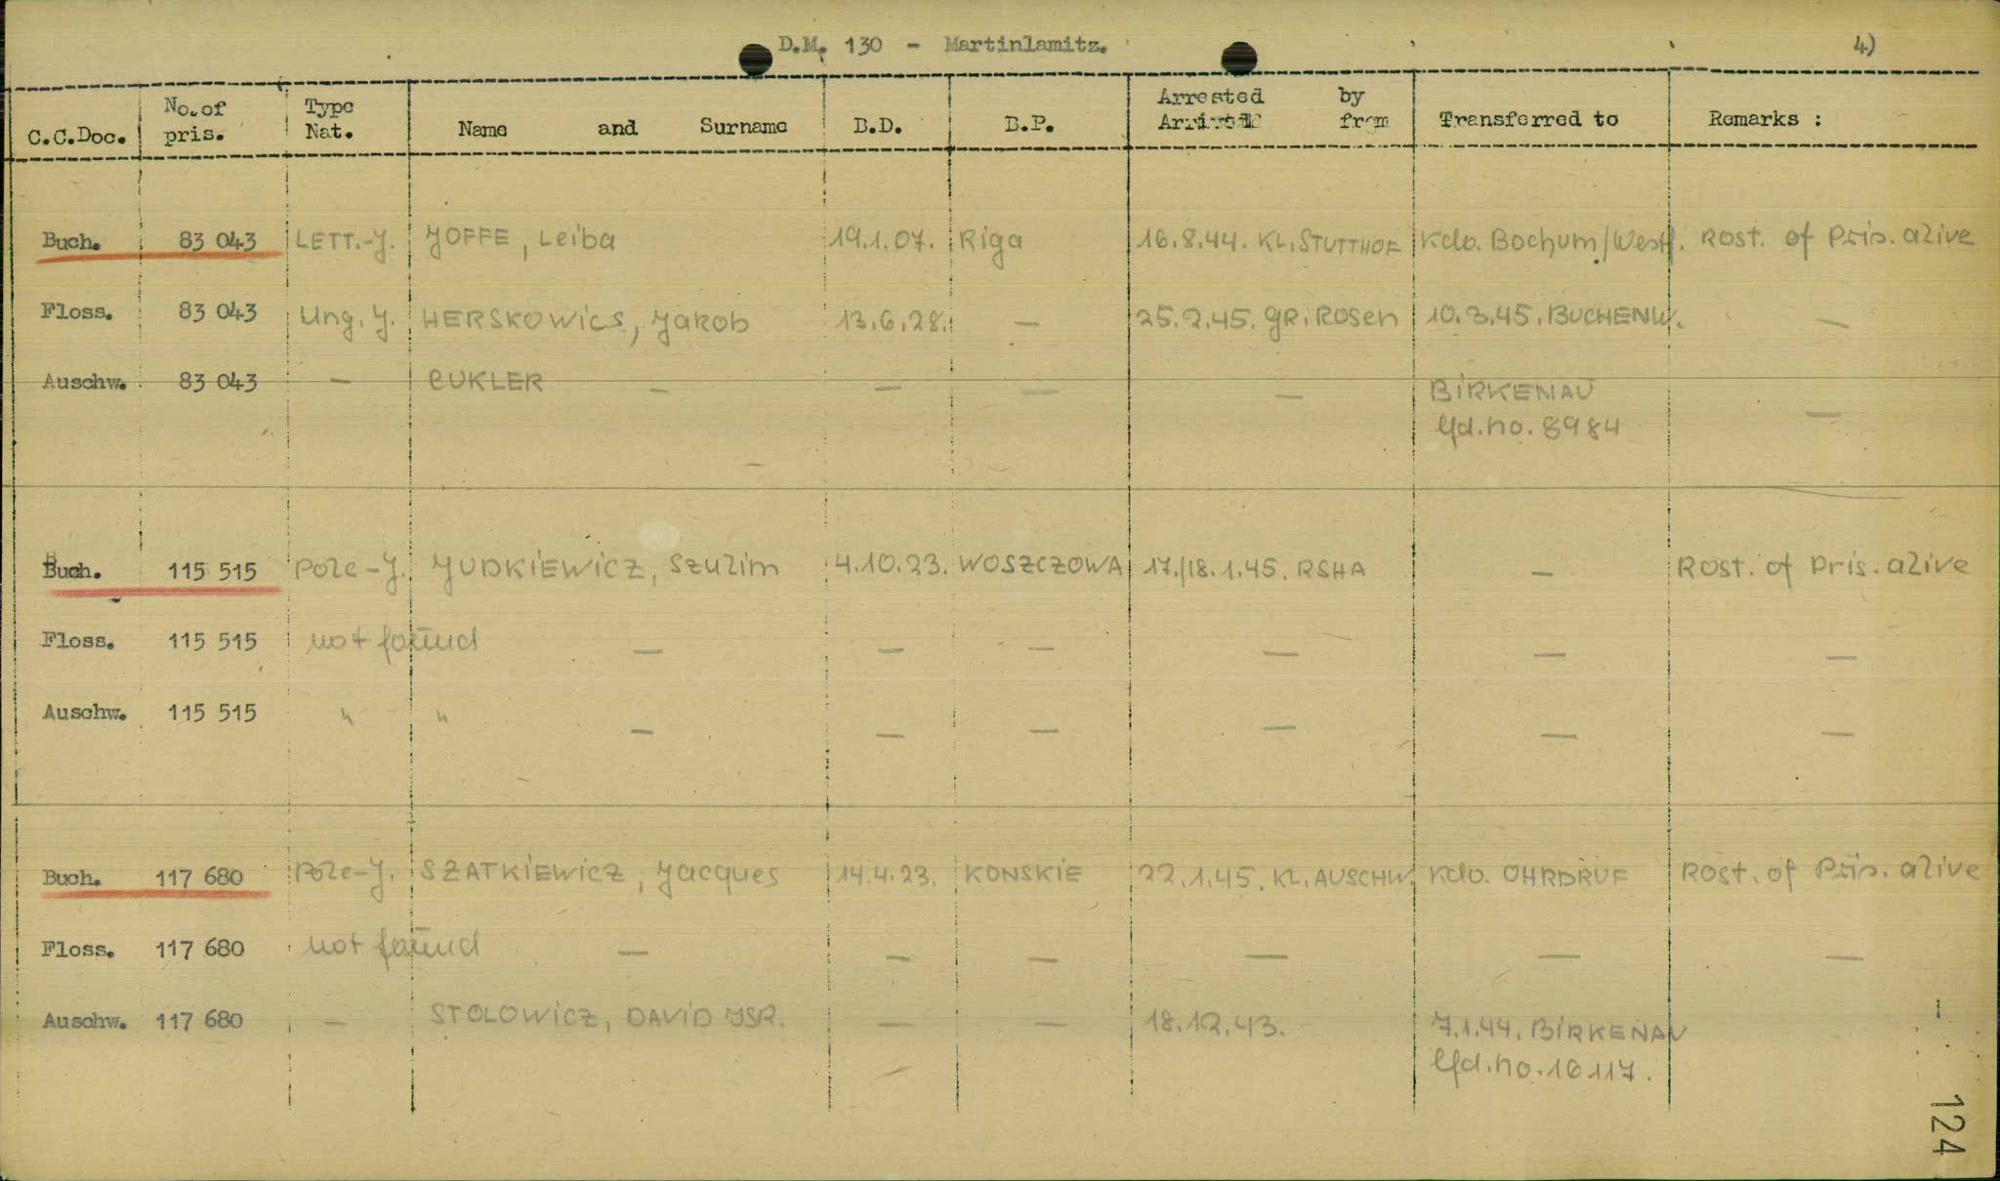 D.M. 130 - Martinlamitz. 4)
C.C.Doc. No. of pris. Type Nat. Name and Surname B.D. B.P. Arrested by Arrived from Transferred to Remarks :
Buch. 83 043 LETT.-J. JOFFE, Leiba 19.1.07. Riga 16.8.44. KL.STUTTHOF Kdo. Bochum/Westf. Rost. of Pris. alive
Floss. 83 043 Ung. J. HERSKOWICS, Jakob 13.6.28. — 25.2.45. GR.ROSEN 10.3.45. BUCHENW. —
Auschw. 83 043 — CUKLER — — — — BIRKENAU —
lfd.no. 8984
Buch. 115 515 Pole-J. JUDKIEWICZ, Szulim 4.10.23. WOSZCZOWA 17./18.1.45. RSHA — Rost. of Pris. alive
Floss. 115 515 not found — — — — — —
Auschw. 115 515 " " — — — — — —
Buch. 117 680 Pole-J. SZATKIEWICZ, Jacques 14.4.23. KONSKIE 22.1.45. KL.AUSCHW. Kdo. OHRDRUF Rost. of Pris. alive
Floss. 117 680 not found — — — — — —
Auschw. 117 680 — STOLOWICZ, DAVID JSR. — — 18.12.43. 7.1.44. BIRKENAU
lfd.no. 16117.
124